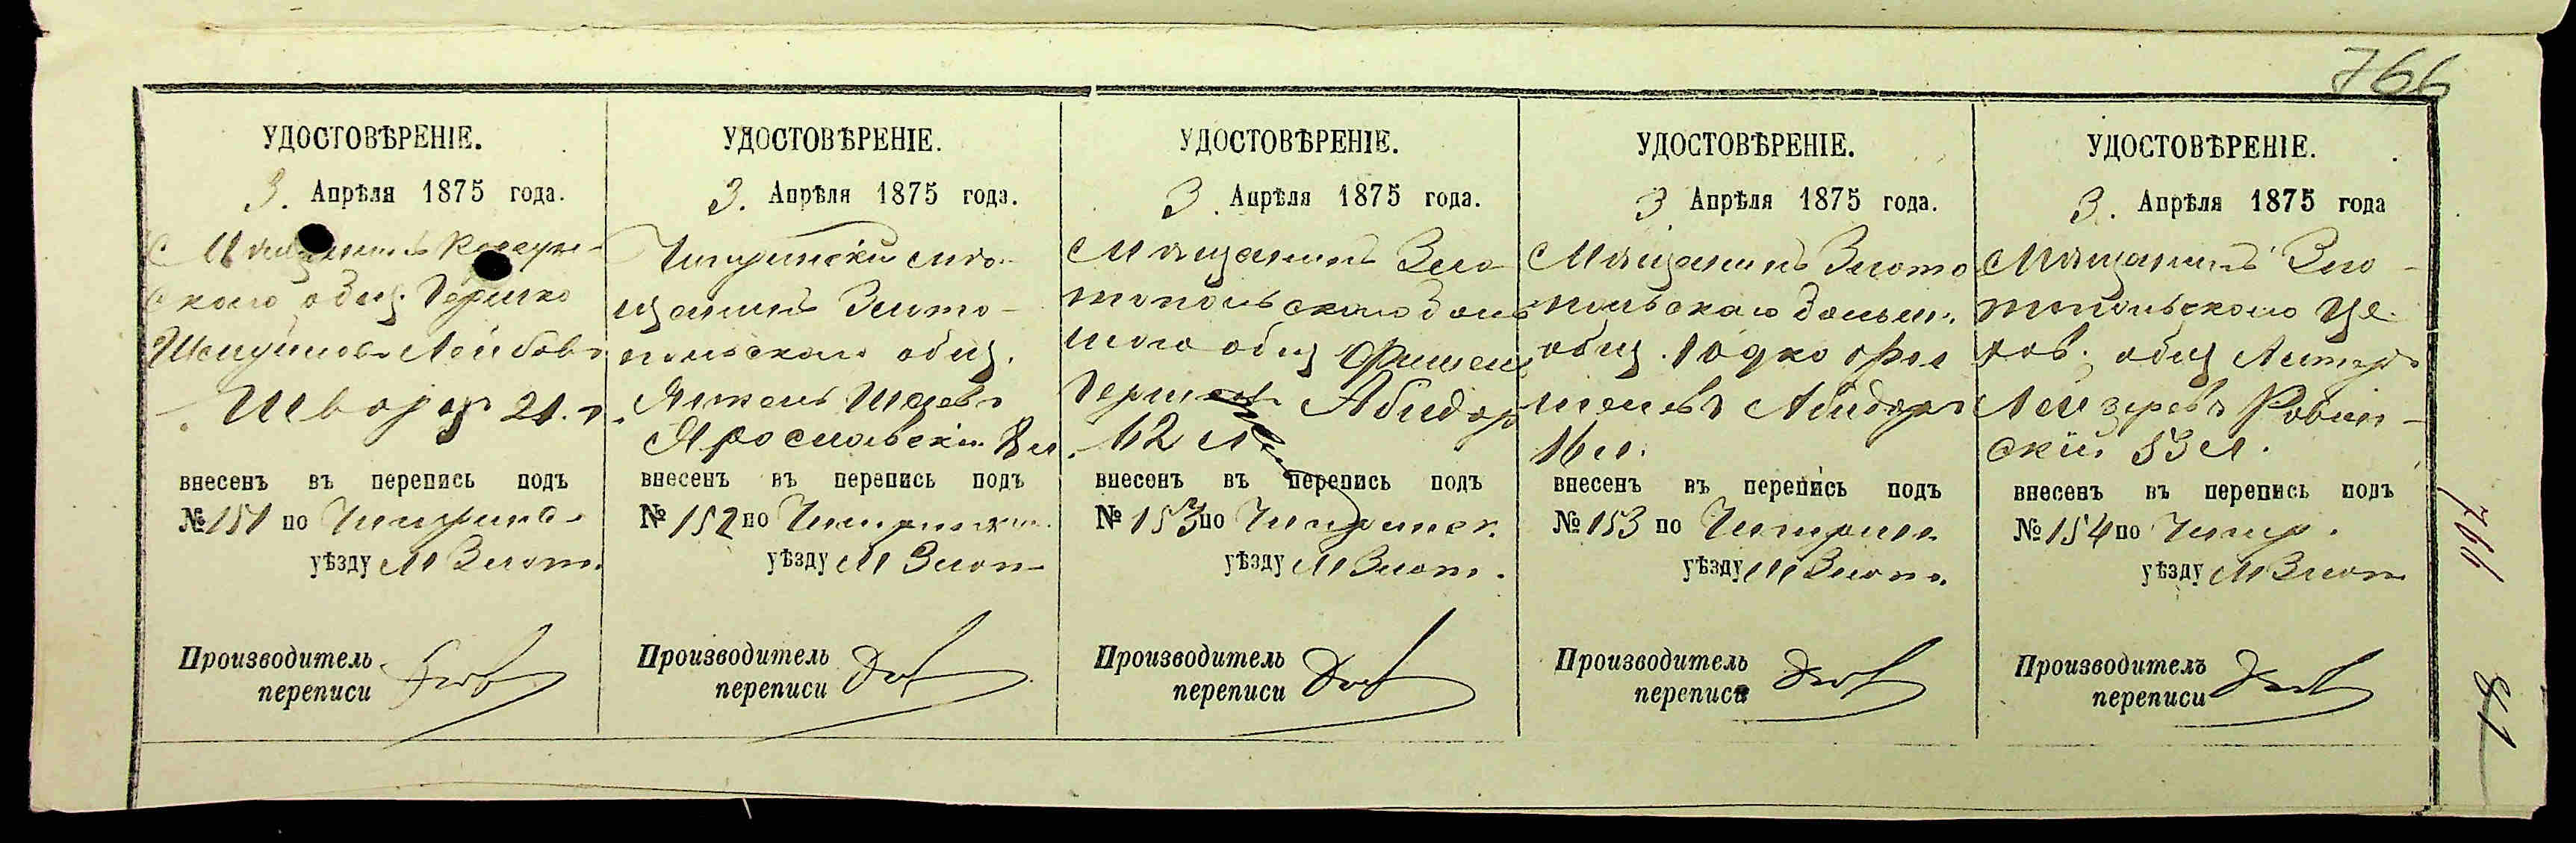 766
УДОСТОВѢРЕНІЕ.
3. Апрѣля 1875 года.
Мѣщанинъ Корсун-
скаго общ. Гершко
Лейбовъ
21.
внесенъ въ перепись подъ
№ 151 по Чигринс-
уѣзду М Злот.
Производитель
переписи
УДОСТОВѢРЕНІЕ.
3. Апрѣля 1875 года.
Чигринскій мѣ-
щанинъ Злато-
польскаго общ.
Ярославскій 8 л
внесенъ въ перепись подъ
№ 152 по Чигринск.
уѣзду М Злот
Производитель
переписи
УДОСТОВѢРЕНІЕ.
3. Апрѣля 1875 года.
Мѣщанинъ Зла-
топольскаго
общ Фишель
Абидор
42 л.
внесенъ въ перепись подъ
№ 153 по Чигринск.
уѣзду М Злот.
Производитель
переписи
УДОСТОВѢРЕНІЕ.
3 Апрѣля 1875 года.
Мѣщанинъ Злато
польскаго
общ. Іодко Фи
шелевъ Абидоръ
16 л.
внесенъ въ перепись подъ
№ 153 по Чигрин.
уѣзду М Злот.
Производитель
переписи
УДОСТОВѢРЕНІЕ.
3. Апрѣля 1875 года
Мѣщанинъ Зла-
топольскаго Це
хов. общ
Лейзеровъ Ровин-
скій 53 л.
внесенъ въ перепись подъ
№ 154 по Чигр.
уѣзду М Злот
Производитель
переписи
766